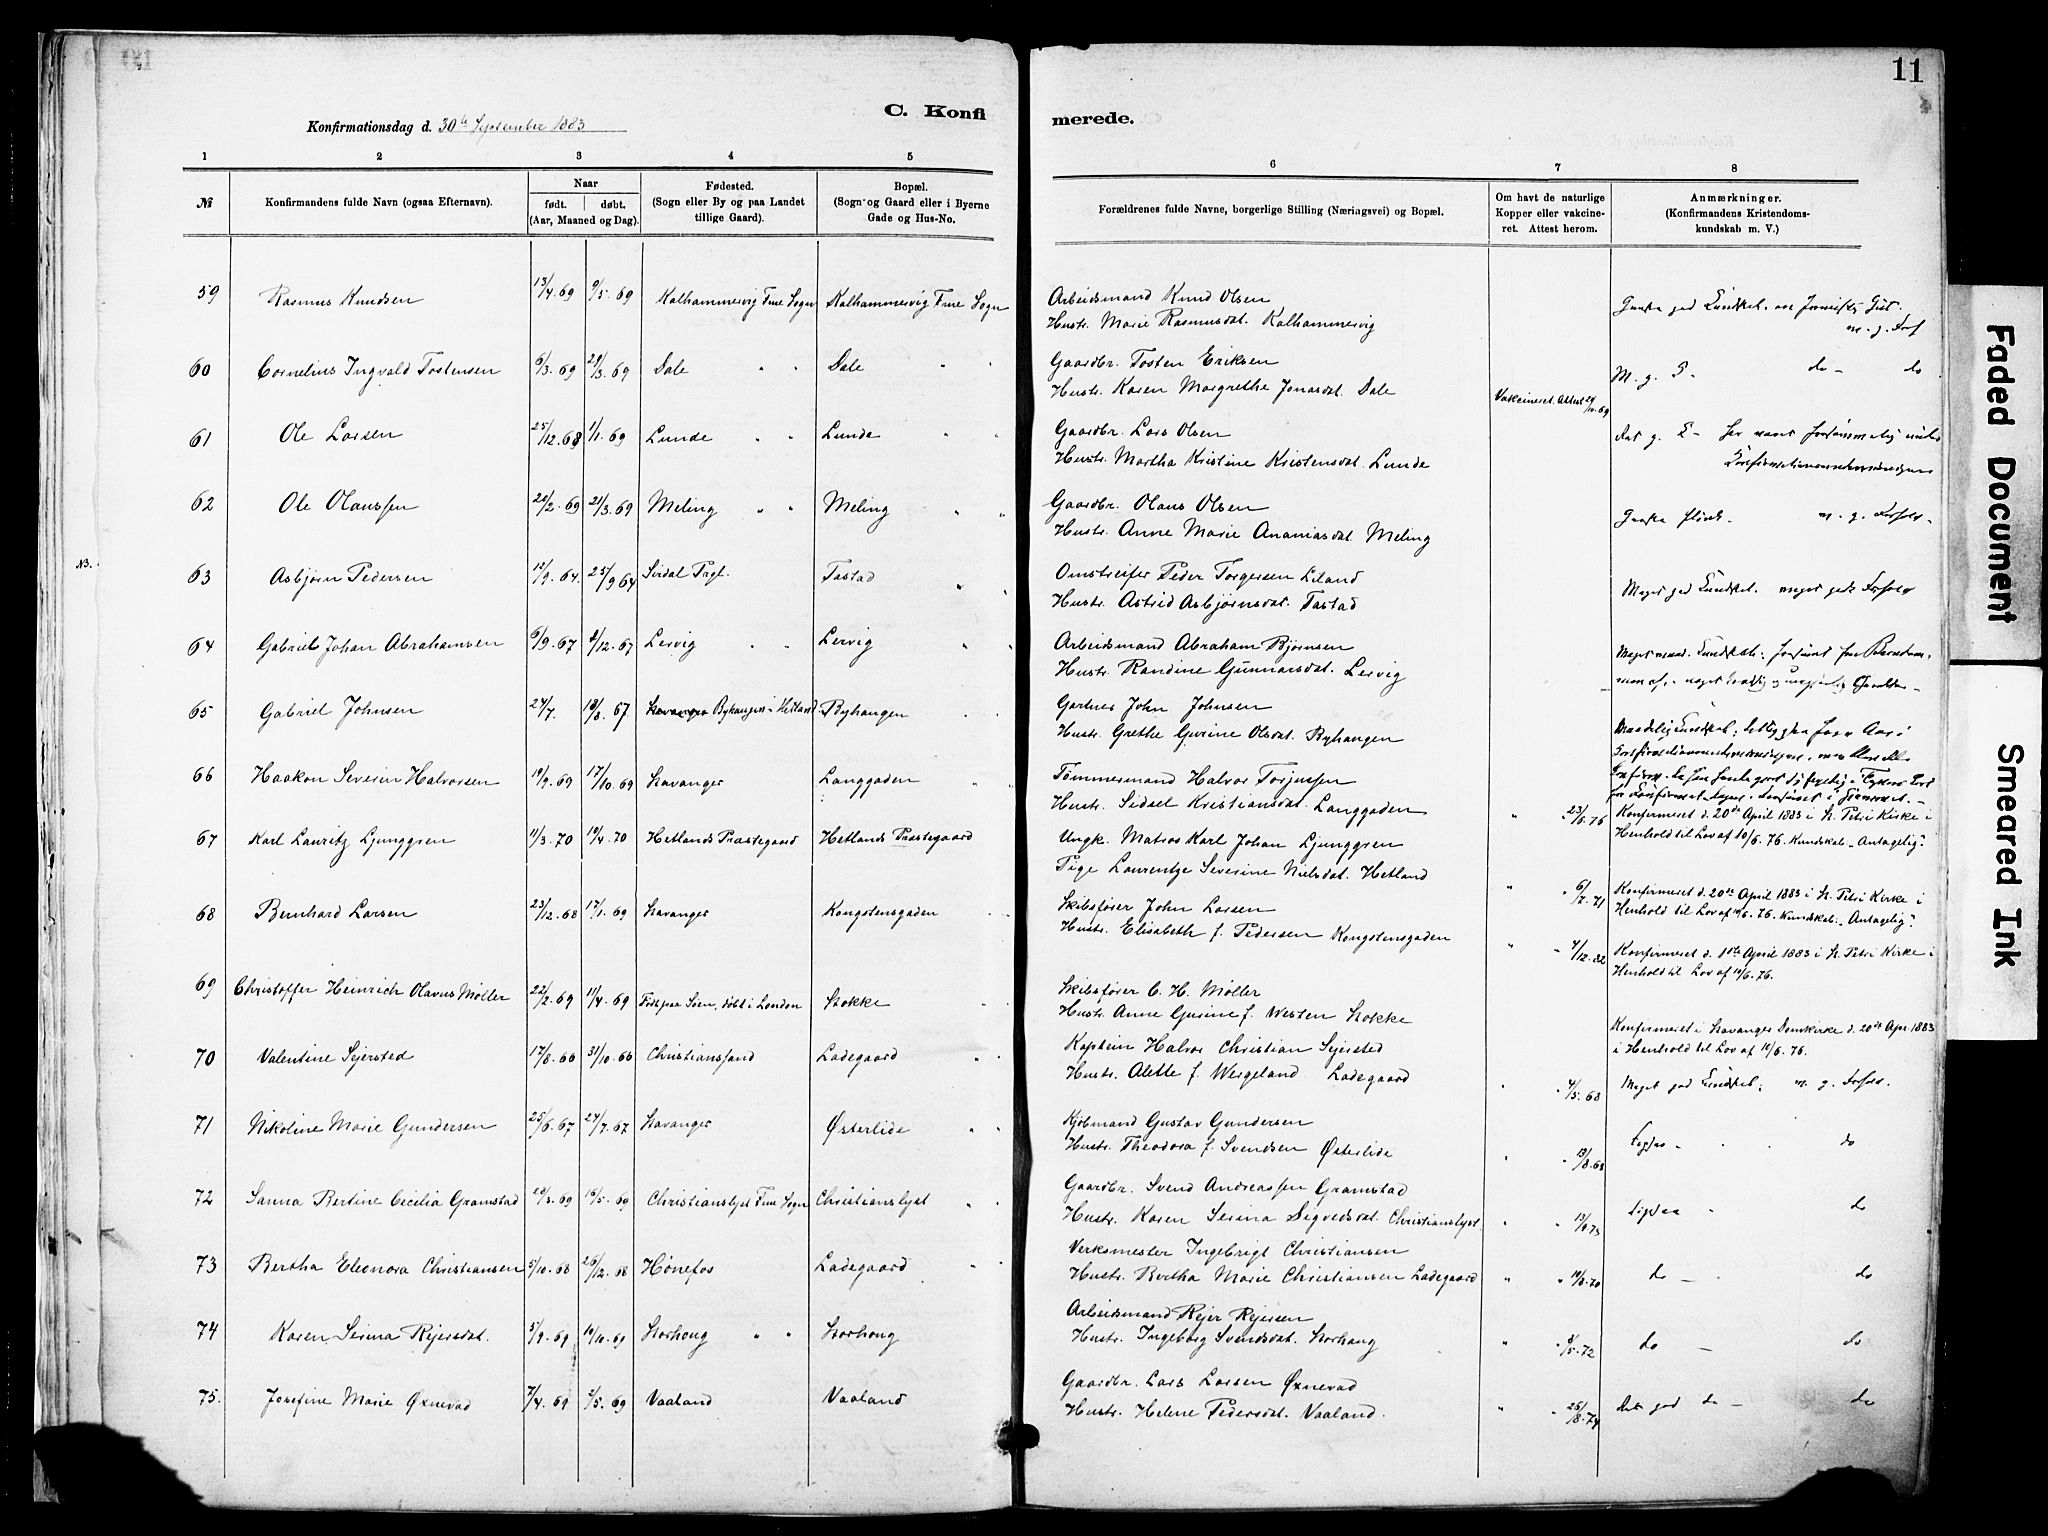 11
C. Konfi merede.
Konfirmationsdag d. 30te September 1883
1 2 3 4 5 6 7 8
№ Konfirmandens fulde Navn (ogsaa Efternavn). Naar født. døbt. (Aar, Maaned og Dag). Fødested. (Sogn eller By og paa Landet tillige Gaard). Bopæl. (Sogn og Gaard eller i Byerne Gade og Hus-No.
Forældrenes fulde Navne, borgerlige Stilling (Næringsvei) og Bopæl. Om havt de naturlige Kopper eller vakcineret. Attest herom. Anmærkninger. (Konfirmandens Kristendomskundskab m. V.)
59 Rasmus Knudsen 13/4.69 9/5.69 Kalhammervig Frue Sogn Kalhammervig Frue Sogn Arbeidsmand Knud Olsen
Hustr. Marie Rasmusdat. Kalhammervig m. g. Forh
60 Cornelius Ingvald Tostensen 6/3.69 29/3.69 Dale " " Dale " " Gaardbr. Tosten Eriksen M. g. do do
Hustr. Karen Margrethe Jonasdat. Dale Vakcineret. Attest 24/10.69
61 Ole Larsen 25/12.68 1/1.69 Lunde " " Lunde " " Gaardbr. Lars Olsen
Hustr. Martha Kristine Kristensdat. Lunde
62 Ole Olaussen 20/2.69 21/3.69 Meling " " Meling " " Gaardbr. Olaus Olsen Ganske flink. m. g. Forhold.
Hustr. Anne Marie Ananiasdat. Meling
NB. 63 Asbjørn Pedersen 12/9.64. 25/9 64 Sirdal Prgl. Tastad " " Omstreifer Peder Torgersen Liland Meget god Kundskab. meget godt Forhold
Hustr. Astrid Asbjørnsdat. Tastad
64 Gabriel Johan Abrahamsen 6/9.67 8/12.67 Lervig " " Lervig " " Arbeidsmand Abraham Bjørnsen
Hustr. Randine Gunnarsdat. Lervig
65 Gabriel Johnsen 24/7. 18/8.67 Stavanger Byhaugen i Hetland Byhaugen " " Gartner John Johnsen
Hustr. Grethe Gurine Olsdat. Byhaugen
66 Haakon Severin Halvorsen 19/9.69 17/10.69 Stavanger Langgaden " " Tømmermand Halvor Torjussen
Hustr. Sidsel Kristiansdat. Langgaden " " 23/6.76 Konfirmeret d. 20de April 1883 i St. Petri Kirke i
67 Karl Lauritz Ljunggren 11/3.70 19/4.70 Hetlands Præstegaard Hetlands Præstegaard Ungk. Matros Karl Johan Ljunggren Henhold til Lov af 10/6.76. Kundskab "Antagelig".
Pige Laurentze Severine Nielsdat. Hetland " " 6/7.71 Konfirmeret d. 20de April 1883 i St. Petri Kirke i
68 Bernhard Larsen 23/12.68 17/1.69 Stavanger Kongstensgaden " " Skibsfører John Larsen Henhold til Lov af 10/6.76. Kundskab. "Antagelig".
Hustr. Elisabeth f. Pedersen Kongstensgaden " " 4/12.82 Konfirmeret d. 1ste April 1883 i St. Petri Kirke i
Henhold til Lov af 10/6.76.
69 Christoffer Heinrich Olavus Møller 22/2.69 11/4.69 Født paa Søen, døbt i London Stokke " Skibsfører C. H. Møller
Hustr. Anne Gurine f. Westen Stokke Konfirmeret i Stavanger Domkirke d. 20de Apr 1883
70 Valentine Sejersted 17/8.66 31/10.66 Christianssand Ladegaard " " Kaptein Halvor Christian Sejersted i Henhold til Lov af 10/6.76.
Hustr. Alette f. Wergeland Ladegaard " " 4/5.68 Meget god Kundskab. m. g. Forhold.
71 Nikoline Marie Gundersen 25/6.67 24/7.67 Stavanger Østerlide " " Kjøbmand Gustav Gundersen Ligesaa " " do
Hustr. Theodora f. Svendsen Østerlide " " 13/8.68
72 Sanna Bertine Cecilia Gramstad 29/3.69 16/5.69 Christianslyst Frue Sogn Christianslyst " " Gaardbr. Svend Andreassen Gramstad Ligesaa " do
Hustr. Karen Serina Sigvedsdat. Christianslyst. " " 13/9.73
73 Bertha Eleonora Christiansen 5/10.68 26/12.68 Hønefos Ladegaard " " Verksmester Ingebrigt Christiansen
Hustr. Bertha Marie Christiansen Ladegaard " " 10/8.70 do — do
74 Karen Serina Rejersdat. 5/9.69 10/10.69 Storhoug " " Storhoug Arbeidsmand Rejer Rejersen
Hustr. Ingeborg Svendsdat. Storhaug " " 8/5.72 do — do
75. Josefine Marie Øxnevad 7/4.69 2/5.69 Vaaland Vaaland Gaardbr. Lars Larsen Øxnevad
Hustr. Helene Pedersdat. Vaaland. " " 26/8.74 Det god do — do
Faded Document
Smeared Ink